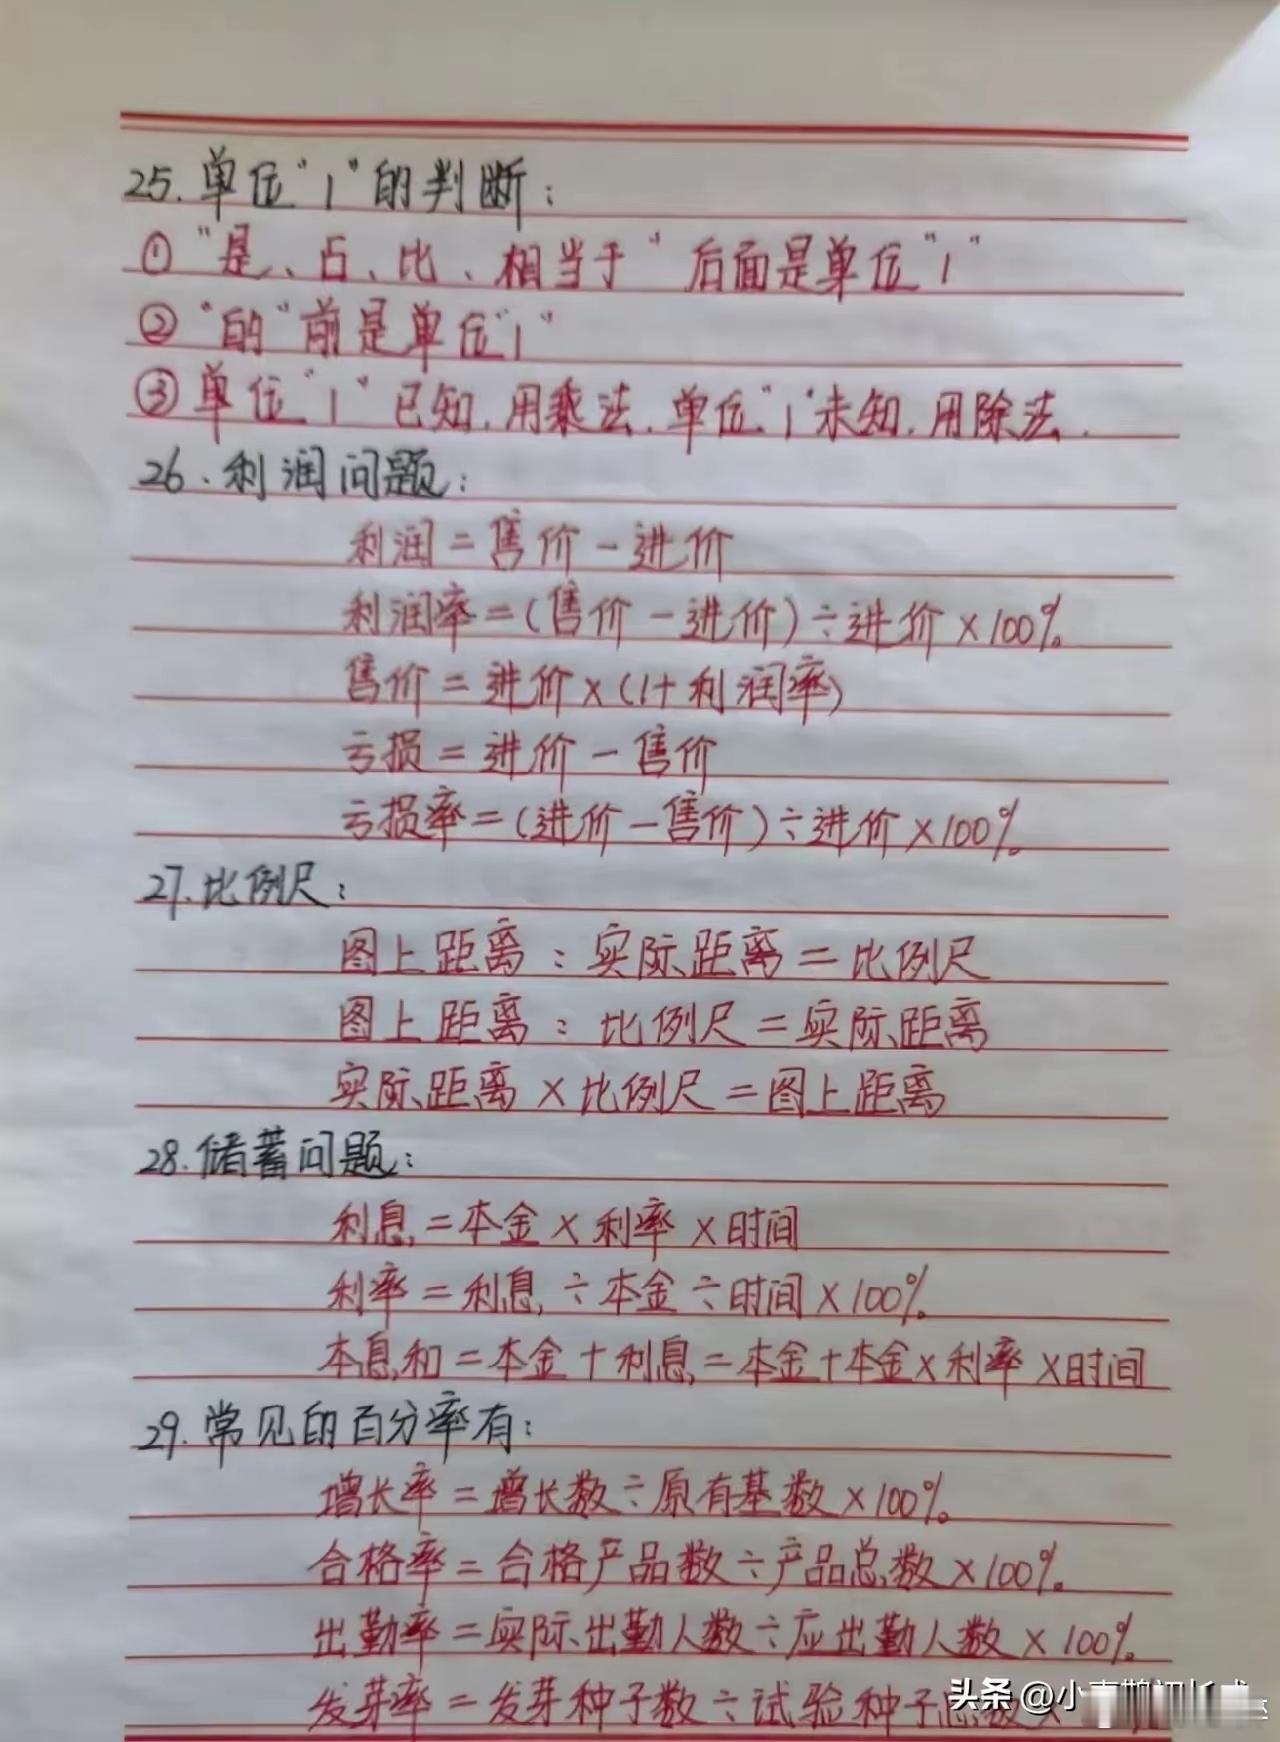 25.单位"1"的判断:
①"是、占、比、相当于"后面是单位"1"
②"的"前是单位"1"
③单位"1"已知,用乘法.单位"1"未知,用除法.
26.利润问题:
利润=售价-进价
利润率=(售价-进价)÷进价×100%
售价=进价×(1+利润率)
亏损=进价-售价
亏损率=(进价-售价)÷进价×100%
27.比例尺:
图上距离:实际距离=比例尺
图上距离:比例尺=实际距离
实际距离×比例尺=图上距离
28.储蓄问题:
利息=本金×利率×时间
利率=利息÷本金÷时间×100%
本息和=本金+利息=本金+本金×利率×时间
29.常见的百分率有:
增长率=增长数÷原有基数×100%
合格率=合格产品数÷产品总数×100%
出勤率=实际出勤人数÷应出勤人数×100%
发芽率=发芽种子数÷试验种子
头条 @小